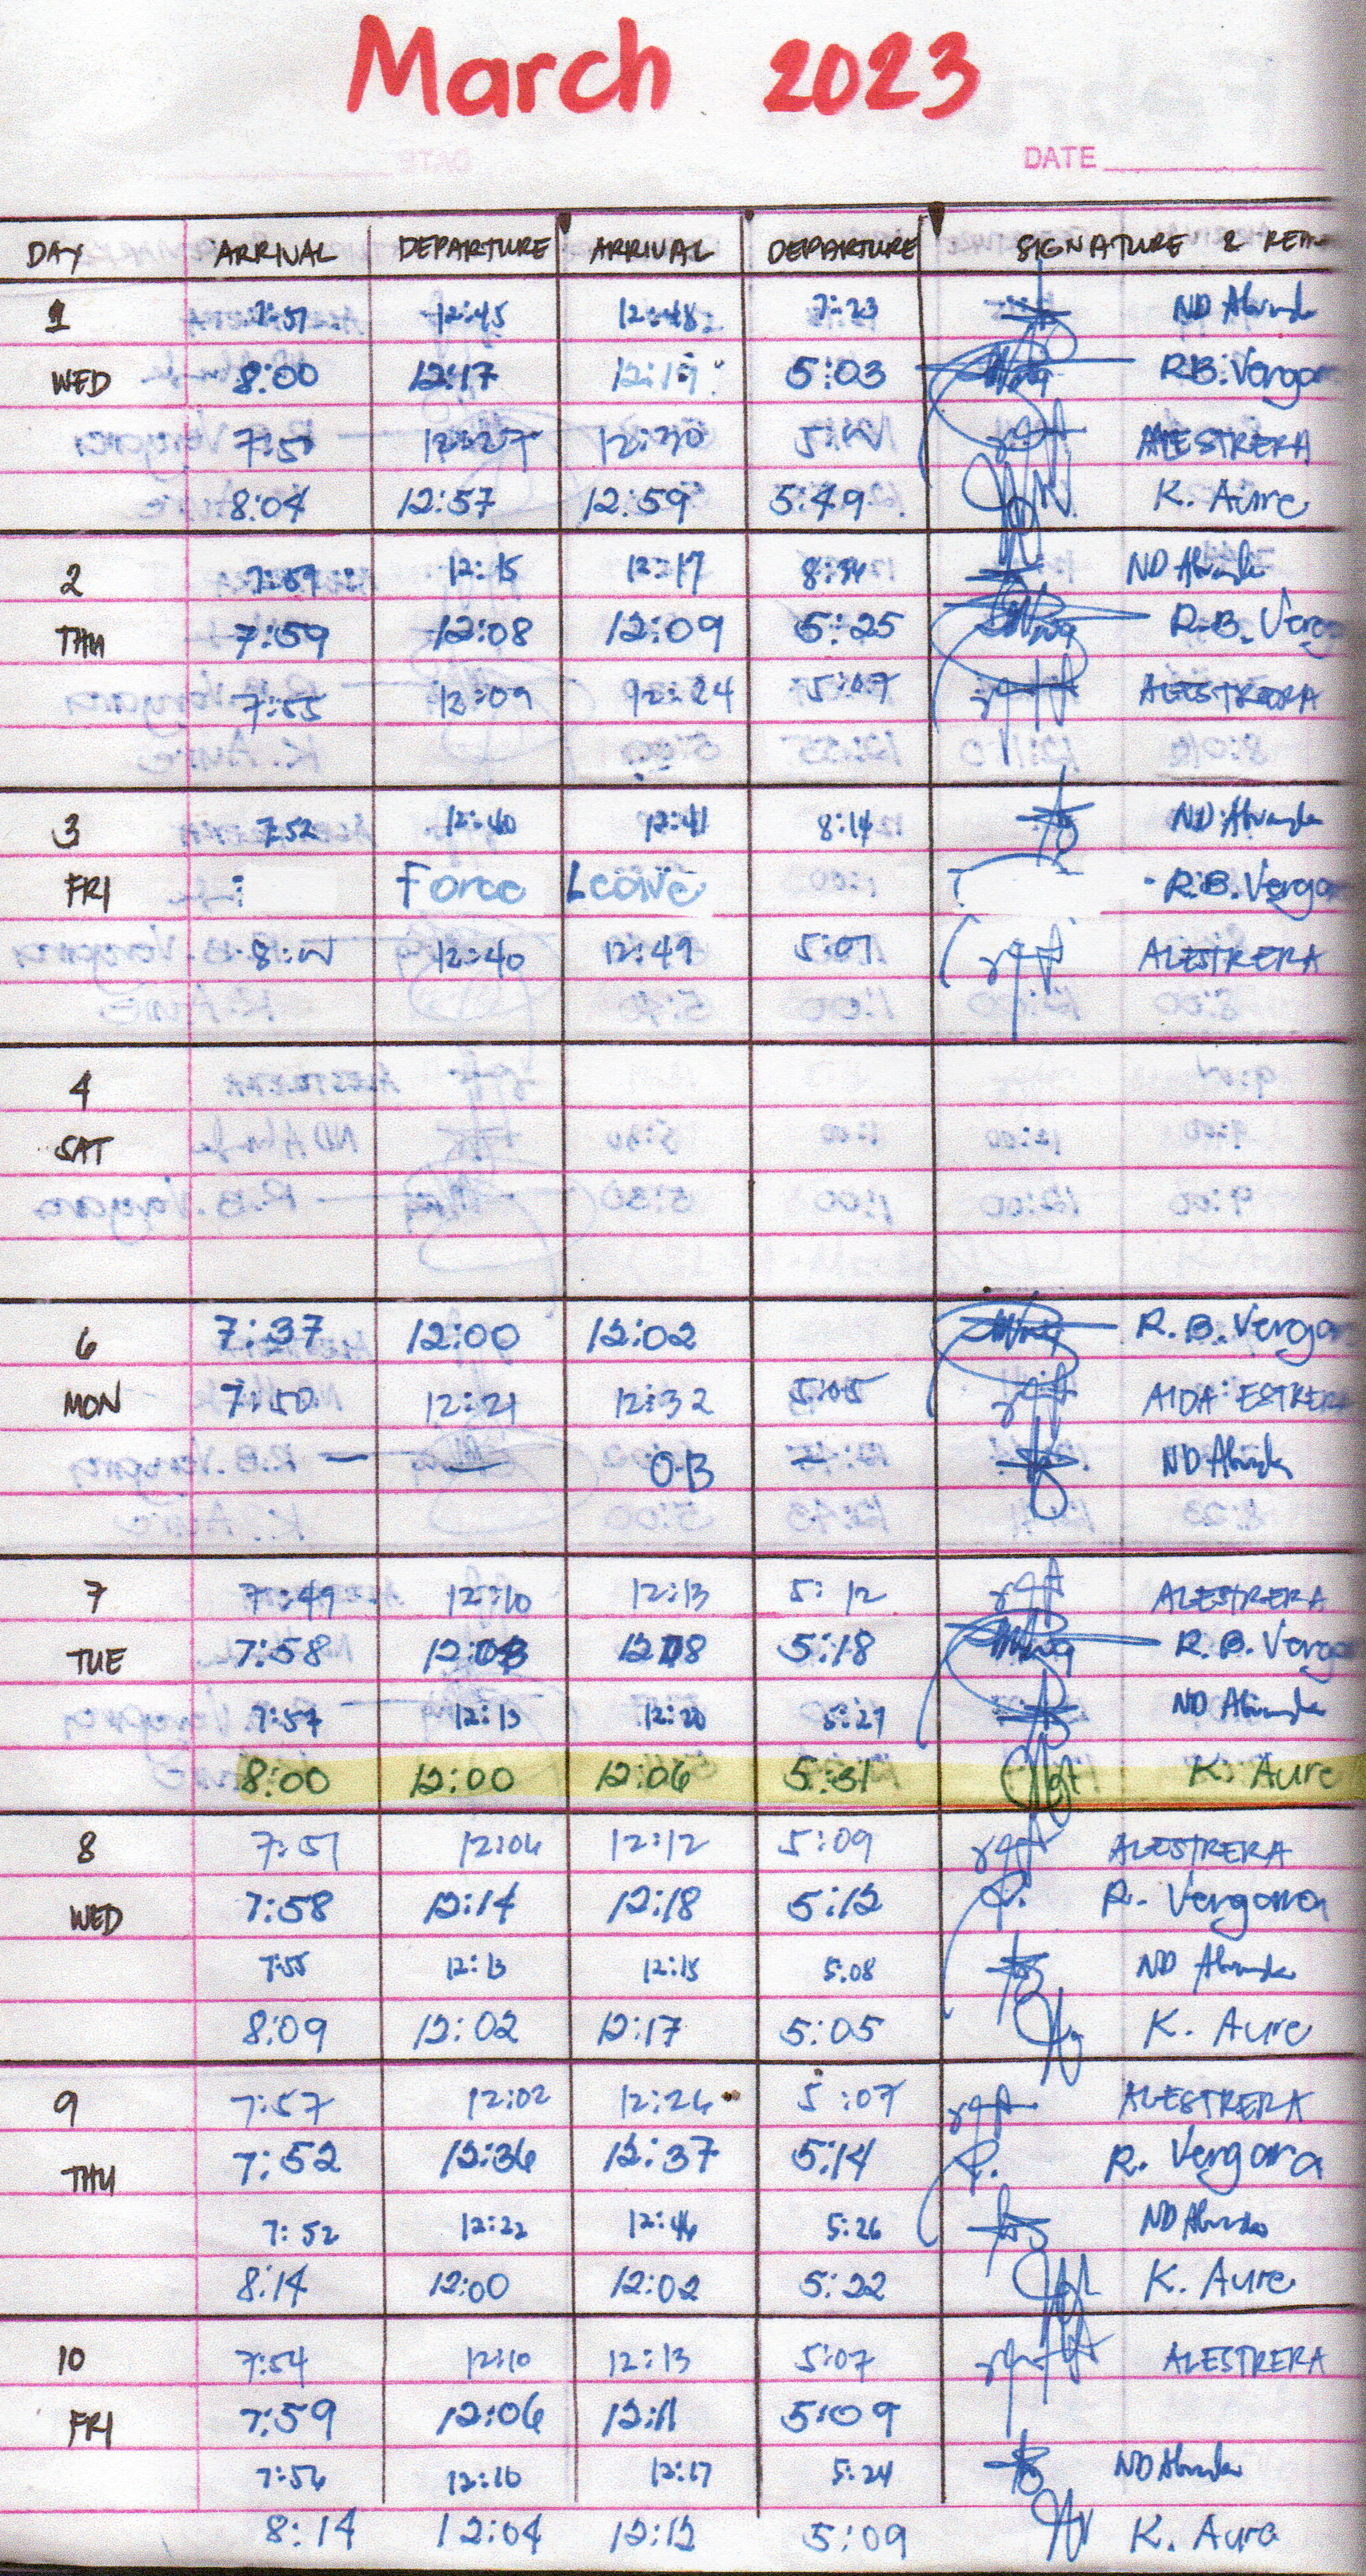 March 2023
DATE
DAY ARRIVAL DEPARTURE ARRIVAL DEPARTURE SIGNATURE &
1 7:57 12:45 12:48 7:23 ND
WED 8:00 12:17 12:19 5:03 R.B. Vergar
12:27 12:30 ALESTRERA
8:04 12:57 12:59 5:49 K. Aure
2 7:59 12:15 12:17 8:34 ND
THU 7:59 12:08 12:09 5:25 R.B. Verg
7:55 12:09 12:24 5:07 ALESTRERA
3 7:52 12:40 12:41 8:14 ND
FRI Force Leave R.B. Verga
12:40 12:49 5:07 ALESTRERA
4
SAT
6 7:37 12:00 12:02 R.B. Verga
MON 7:50 12:21 12:32 5:05 AIDA ESTRERA
— — OB — ND
7 7:49 12:10 12:13 5:12 ALESTRERA
TUE 7:58 5:18 R.B. Verga
7:57 12:13 12:20 5:27 ND
8:00 12:00 12:06 5:31 K. Aure
8 7:51 12:06 12:12 5:09 ALESTRERA
WED 7:58 12:14 12:18 5:12 R. Vergara
7:55 12:13 12:15 5:08 ND
8:09 12:02 12:17 5:05 K. Aure
9 7:57 12:02 12:26 5:07 ALESTRERA
THU 7:52 12:36 12:37 5:14 R. Vergara
7:52 12:22 12:46 5:26 ND
8:14 12:00 12:02 5:22 K. Aure
10 7:54 12:10 12:13 5:07 ALESTRERA
FRI 7:59 12:06 12:11 5:09
7:56 12:16 12:17 5:24 ND
8:14 12:04 12:12 5:09 K. Aure